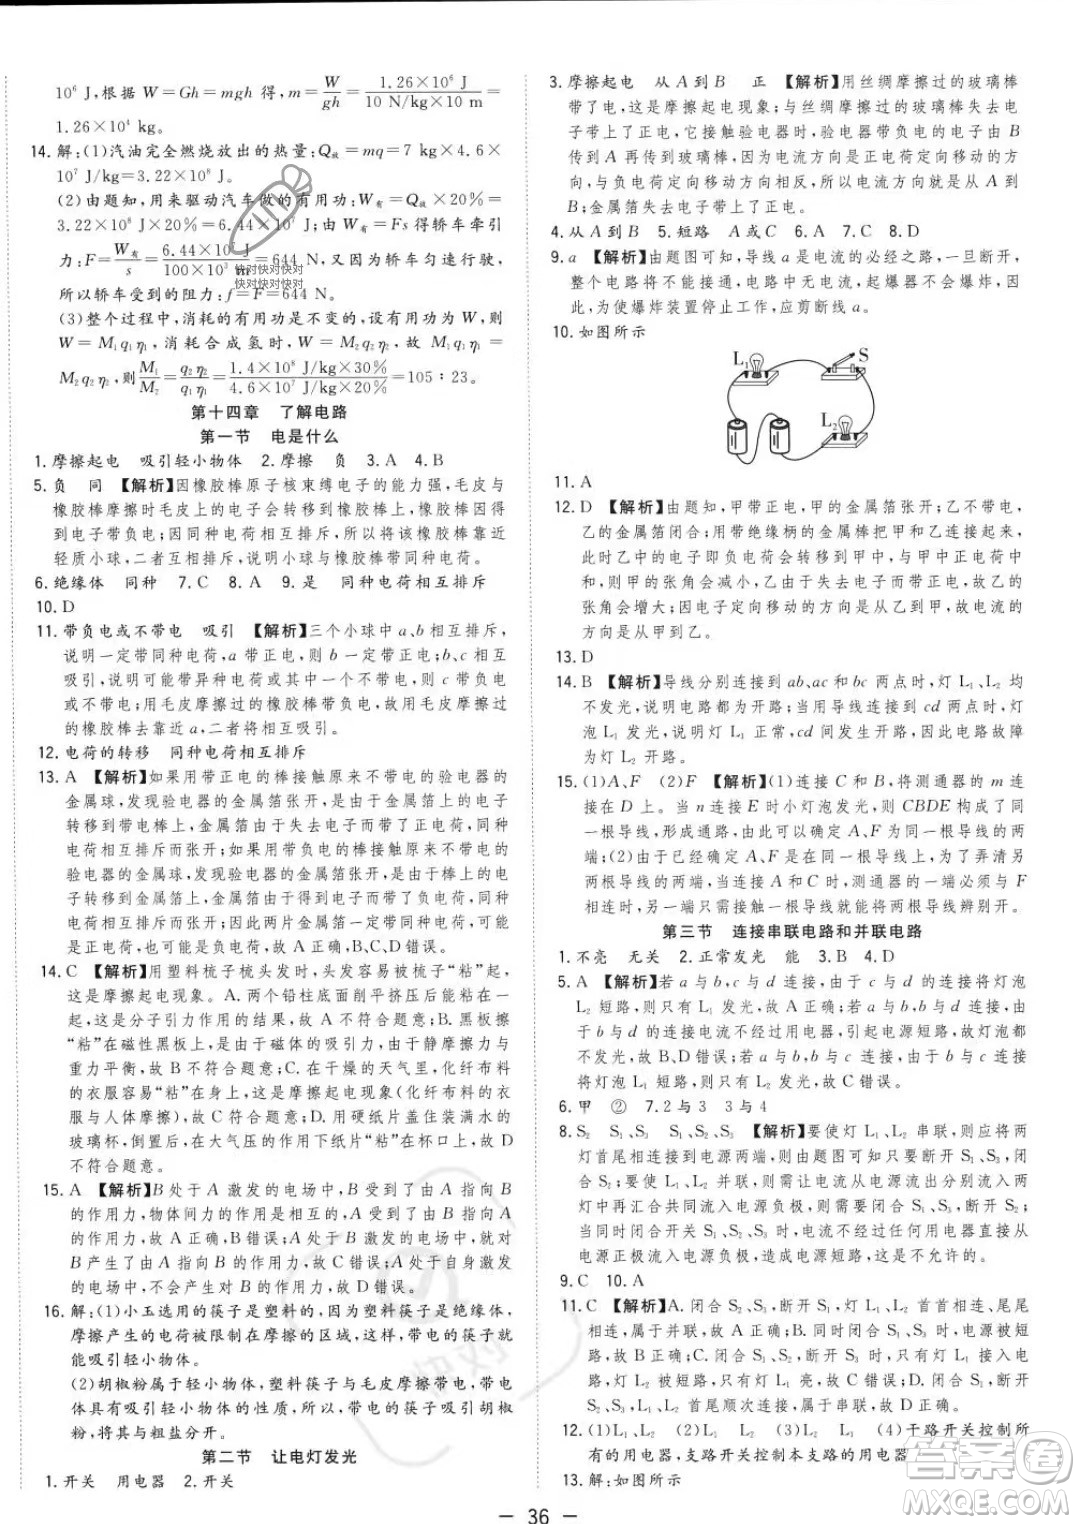 10⁶ J,根据 W=Gh=mgh 得,m=W/gh=1.26×10⁶ J/(10 N/kg×10 m)=
1.26×10⁴ kg。
14.解:(1)汽油完全燃烧放出的热量:Q放=mq=7 kg×4.6×
10⁷ J/kg=3.22×10⁸ J。
(2)由题知,用来驱动汽车做的有用功:W有=Q放η=
3.22×10⁸ J×20%=6.44×10⁷ J;由 W有=Fs 得轿车牵引
力:F=W有/s=6.44×10⁷ J/(100×10³ m)=644 N,因为轿车匀速行驶,
所以轿车受到的阻力:f=F=644 N。
(3)整个过程中,消耗的有用功是不变的,设有用功为 W,则
W=M₁q₁η₁,消耗合成氢时,W=M₂q₂η₂,故 M₁q₁η₁=
M₂q₂η₂,则M₁/M₂=q₂η₂/q₁η₁=1.4×10⁸ J/kg×30%/(4.6×10⁷ J/kg×20%)=105∶23。
第十四章 了解电路
第一节 电是什么
1.摩擦起电 吸引轻小物体 2.摩擦 负 3.A 4.B
5.负 同 【解析】因橡胶棒原子核束缚电子的能力强,毛皮与
橡胶棒摩擦时毛皮上的电子会转移到橡胶棒上,橡胶棒因得
到电子带负电;因同种电荷相互排斥,所以将橡胶棒靠近
轻质小球,二者互相排斥,说明小球与橡胶棒带同种电荷。
6.绝缘体 同种 7.C 8.A 9.是 同种电荷相互排斥
10.D
11.带负电或不带电 吸引 【解析】三个小球中 a、b 相互排斥,
说明一定带同种电荷,a 带正电,则 b 一定带正电;b、c 相互
吸引,可能是带异种电荷或一个带电一个不带电,则 c 带负电
或不带电;用毛皮摩擦过的橡胶棒带负电,因此,毛皮摩擦过
的橡胶棒去靠近 a,二者将相互吸引。
12.电荷的转移 同种电荷相互排斥
13.A 【解析】如果用带正电的棒接触原来不带电的验电器的
金属球,发现验电器的金属箔张开,是由于金属箔上的电子
转移到带电棒上,金属箔由于失去电子而带正电荷,同种
电荷相互排斥而张开;如果用带负电的棒接触原来不带电
的验电器的金属球,发现验电器的金属箔张开,由于棒上的
电子转移到金属箔上,金属箔由于得到电子而带负电荷,同
种电荷相互排斥而张开;因此两片金属箔一定带同种电荷,
可能带正电荷,也可能带负电荷,故 A 正确,B、C、D 错误。
14.C 【解析】用塑料梳子梳头发时,头发与梳子“粘”在一起,是
摩擦起电现象。A.两个铅柱底面削平挤压后“粘”在一起,
这是分子引力作用的结果,故 A 不符合题意。B.黑板擦
“粘”在磁性黑板上,是由于磁体的吸引,由于静摩擦力与
重力平衡,故 B 不符合题意;C.在干燥的天气里,化纤布料
的衣服容易“粘”在身上,是摩擦起电现象(化纤布料的衣
服与人体摩擦),故 C 符合题意;D.用硬纸片盖住装满水的
玻璃杯,倒置后,在大气压的作用下纸片“粘”在杯口上,故 D
不符合题意。
15.A 【解析】B 处于 A 激发的电场中,B 受到了由 A 指向 B
的作用力,物体间力的作用是相互的,A 受到了由 B 指向 A
的作用力,故 A 正确,B 错误;A 处于 B 激发的电场中,B
对 A 产生了由 B 指向 A 的作用力,故 C 错误;A 处于自身
激发的电场中,不会产生对 B 的作用力,故 D 错误。
16.解:(1)小玉选用的筷子是塑料的,因为塑料筷子是绝缘体,
摩擦产生的电荷被限制在摩擦的区域,这样,带电的筷子就
能吸引轻小物体。
(2)胡椒粉属于轻小物体,塑料筷子与毛皮摩擦带电,带电
体具有吸引轻小物体的性质,所以,带电的筷子吸引胡椒
粉,将其与粗盐分开。
第二节 让电灯发光
1.开关 用电器 2.开关
3.摩擦起电 从 A 到 B 正 【解析】用丝绸摩擦过的玻璃棒
带了电,这是摩擦起电现象;与丝绸摩擦过的玻璃棒失去电
子带上了正电,它接触验电器时,验电器带负电的电子由 B
传到 A 再传到玻璃棒。因为电流方向与正电荷定向移动方
向相同,与负电荷定向移动方向相反,所以电流方向是从 A 到
B;金属箔失去电子带上了正电。
4.从 A 到 B 5.短路 A或C 6.A 7.C 8.D
9.a 【解析】由题图可知,导线 a 是电流的必经之路,一旦断开,
整个电路将不能接通,电路中无电流,起爆器不会爆炸,因
此,为使爆炸装置停止工作,应剪断线 a。
10.如图所示
L₁ S
L₂
11.A
12.D 【解析】由题知,甲带正电,甲的金属箔张开;乙不带电,
乙的金属箔闭合;用带绝缘柄的金属棒把甲和乙连接起来,
此时乙中的电子即负电荷会转移到甲中,与甲中正电荷中
和,则甲的张角会减小;乙由于失去电子而带正电,故乙的
张角会增大;因电子定向移动的方向由乙到甲,故电流的方
向是由甲到乙。
13.D
14.B 【解析】导线分别连接到 ab、ac 和 bc 两点时,灯 L₁、L₂ 均
不发光,说明电路都为开路;当导线连接到 cd 两点时,灯
L₁、L₂ 均发光,说明电路正常,cd 间发生开路,此电路故障
为灯 L₂ 开路。
15.(1)A、F (2)F 【解析】(1)连接 C 和 B,将测通器的 m 连
接在 D 上。当 n 连接 E 时小灯泡发光,则 CBDE 构成了同
一根导线,形成通路,由此可以确定 A、F 为另一根导线的两
端;(2)由于确定 A、F 是同一根导线,故为了弄清与 F
同一根导线的两端,先连接 A、F 时,测通器的一端与 F
连接时灯泡发光,故只要接触一根导线就能将导线辨别开。
第三节 连接串联电路和并联电路
1.不亮 无关 2.正常发光 能 3.B 4.D
5.A 【解析】若 a 与 b,c 与 d 连接,由于 c 与 d 连接将灯泡
L₂ 短路,所以只有 L₁ 发光,故 A 正确;若 a 与 b、b 与 d 连接,由
于 b 与 d 的连接电流不经过用电器,引起电源短路,故灯泡都
不发光,故 B、D 错误;若 a 与 c、b 与 c 连接,由于 b 与 c 连接
将灯泡 L₁ 短路,则灯泡 L₂ 发光,故 C 错误。
6.甲 ② 7.2 与 3 3 与 4
8.S₂ S₁、S₃ S₁、S₂、S₃ 【解析】要使灯 L₁、L₂ 串联,应将两
灯首尾相连接到电源两端,由题图可知,只要断开 S₁、S₃,闭
合 S₂;要使灯 L₁、L₂ 并联,则需让电流流出分别流入两
灯中再汇合共同流入电源负极,所以应闭合 S₁、S₃,断开 S₂;
当同时闭合开关 S₁、S₂、S₃ 时,没有经过任何用电器直接从
电源正极流入电源负极,造成电源短路,这是不允许的。
9.C 10.A
11.C 【解析】A.闭合 S₁、S₂,断开 S₃,灯 L₁、L₂ 首首相连、尾尾
相连,属于并联,故 A 正确;B.同时闭合 S₁、S₂、S₃,造成电源
短路,故 B 正确;C.闭合 S₁、S₃,断开 S₂,灯 L₁ 亮,L₂ 不亮,故
C 错误;D.闭合 S₁,断开 S₂、S₃,只有灯 L₁ 亮,当闭合 S₂,断
开 S₁、S₃,两灯都不亮,故 D 正确。
12.(1)L₁、L₂ (2)L₁、L₂ (3)L₂ (4)L₁ 干路开关控制所
有的用电器,支路开关控制本支路的用电器
13.解:如图所示
— 36 —
快对快对快对
快对快对快对
快对
答案圈
MXQE.COM